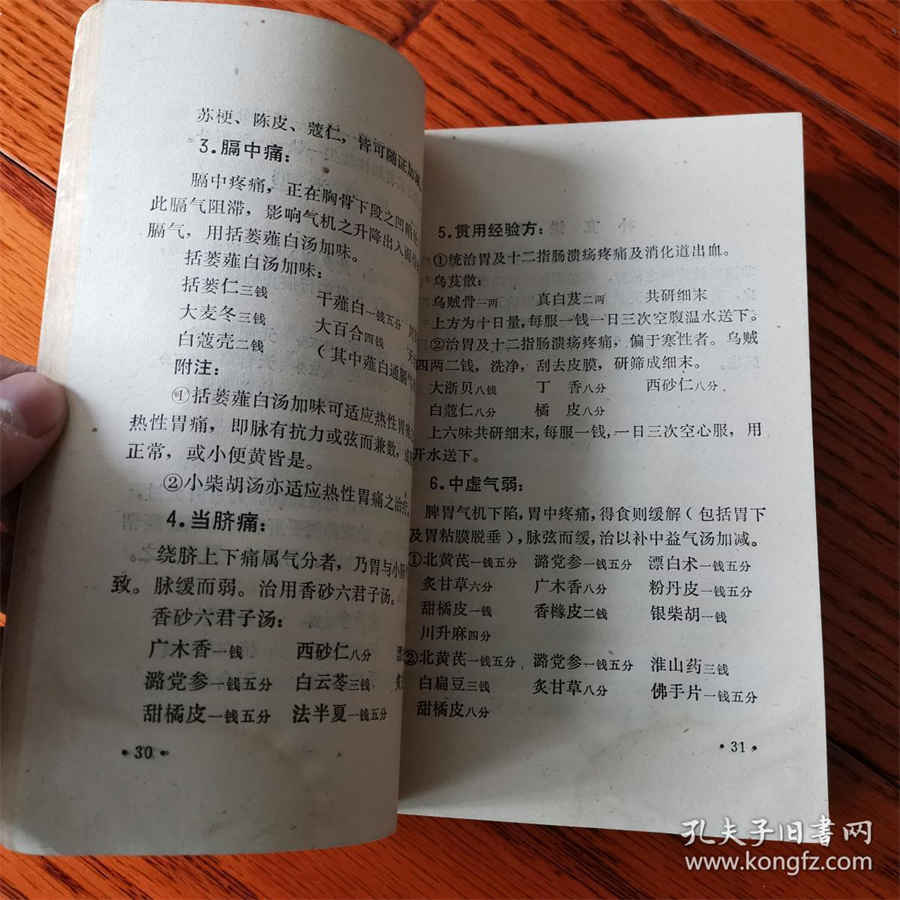 苏梗、陈皮、蔻仁，皆可随证加减
3.膈中痛：
膈中疼痛，正在胸骨下段之凹陷
此膈气阻滞，影响气机之升降出入
膈气，用括蒌薤白汤加味。
括蒌薤白汤加味：
括蒌仁三钱 干薤白一钱五分
大麦冬三钱 大百合四钱
白蔻壳二钱 （其中薤白通膈气
附注：
①括蒌薤白汤加味可适应热性胃
热性胃痛，即脉有抗力或弦而兼数，
正常，或小便黄皆是。
②小柴胡汤亦适应热性胃痛之治
4.当脐痛：
绕脐上下痛属气分者，乃胃与小
致。脉缓而弱。治用香砂六君子汤。
香砂六君子汤：
广木香一钱 西砂仁八分
潞党参一钱五分 白云苓三钱
甜橘皮一钱五分 法半夏一钱五分
·30·
5.贯用经验方：
①统治胃及十二指肠溃疡疼痛及消化道出血。
乌芨散：
乌贼骨一两 真白芨二两 共研细末
上方为十日量，每服一钱一日三次空腹温水送下。
②治胃及十二指肠溃疡疼痛，偏于寒性者。乌贼
四两二钱，洗净，刮去皮膜，研筛成细末。
大浙贝八钱 丁香八分 西砂仁八分
白蔻仁八分 橘皮八分
上六味共研细末，每服一钱，一日三次空心服，用
开水送下。
6.中虚气弱：
脾胃气机下陷，胃中疼痛，得食则缓解（包括胃下
及胃粘膜脱垂），脉弦而缓，治以补中益气汤加减。
①北黄芪一钱五分 潞党参一钱五分 漂白术一钱五分
炙甘草六分 广木香八分 粉丹皮一钱五分
甜橘皮一钱 香橼皮二钱 银柴胡一钱
川升麻四分
②北黄芪一钱五分 潞党参一钱五分 淮山药三钱
白扁豆三钱 炙甘草八分 佛手片一钱五分
甜橘皮八分
·31·
孔夫子旧書网
www.kongfz.com